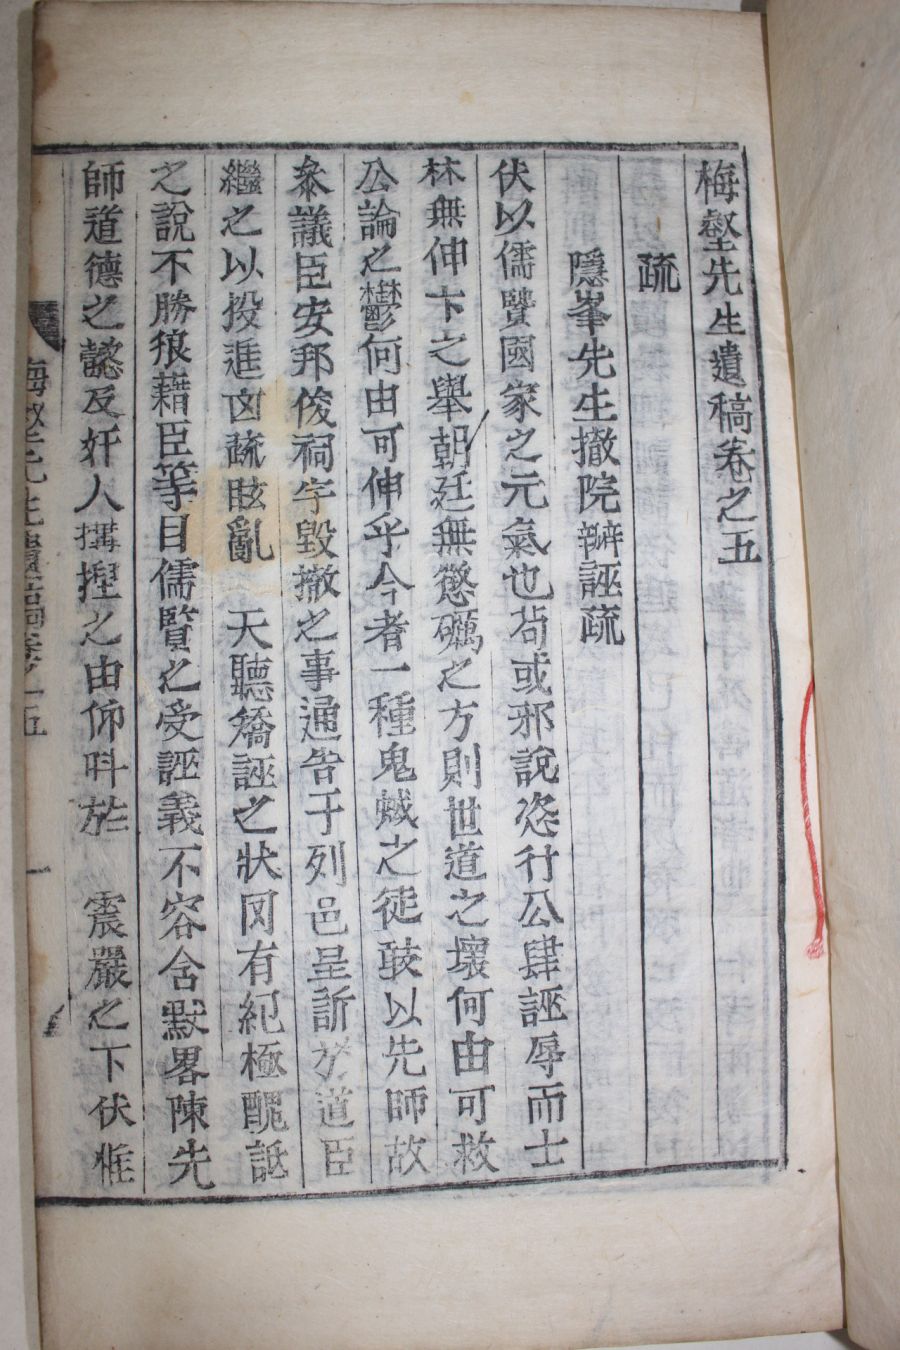 梅壑先生遺稿卷之五
疏
隱峯先生撤院辨誣疏
伏以儒賢國家之元氣也苟或邪說恣行公肆誣辱而士
林無伸卞之擧朝廷無懲礪之方則世道之壞何由可救
公論之鬱何由可伸乎今者一種鬼蜮之徒敢以先師故
叅議臣安邦俊祠宇毀撤之事通告于列邑呈訴於道臣
繼之以投進凶疏眩亂 天聽矯誣之狀罔有紀極醜詆
之說不勝狼藉臣等目儒賢之受誣義不容含默畧陳先
師道德之懿及奸人搆捏之由仰呌於 震嚴之下伏惟
梅壑先生遺稿卷之五 一